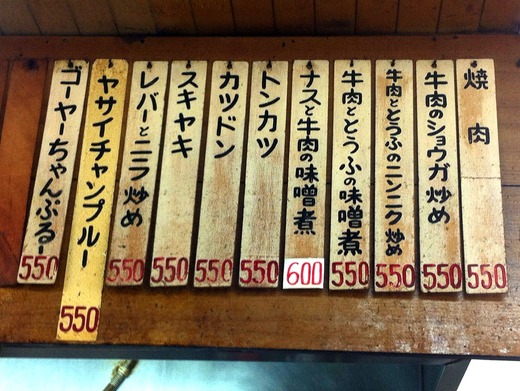 焼肉
550
牛肉のショウガ炒め
550
牛肉ととうふのニンニク炒め
550
牛肉ととうふの味噌煮
550
ナスと牛肉の味噌煮
600
トンカツ
550
カツドン
550
スキヤキ
550
レバーとニラ炒め
550
ヤサイチャンプルー
550
ゴーヤーちゃんぷるー
550